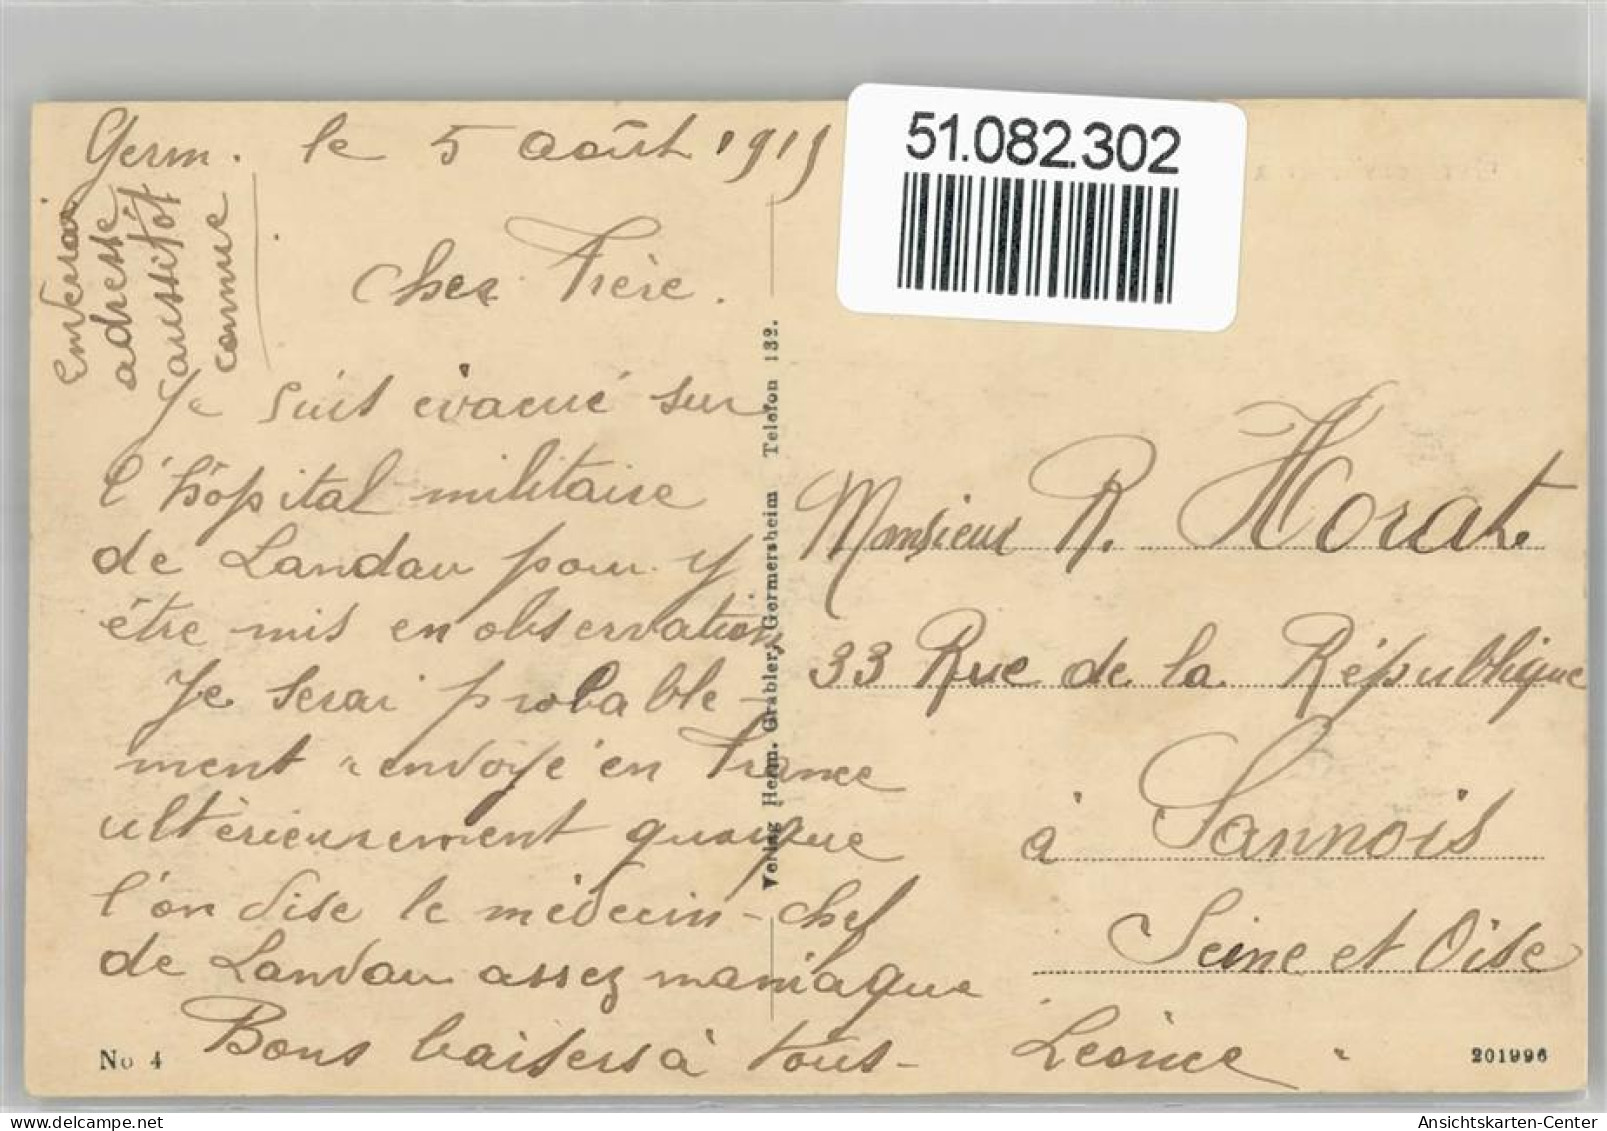 Germ. le 5 août 1919
Enverrai
adresse
aussitôt
connue
Cher Frère.
Je suis évacué sur
l'hôpital militaire
de Landau pour y
être mis en observation
Je serai probable-
ment renvoyé en France
ultérieurement quoique
l'on dise le médecin-chef
de Landau assez maniaque
Bons baisers à tous - Léonce
No 4
Verlag Herm. Grabler, Germersheim Telefon 132.
51.082.302
Monsieur R. Horat
33 Rue de la République
à Sannois
Seine et Oise
201996
Ansichtskarten-Center